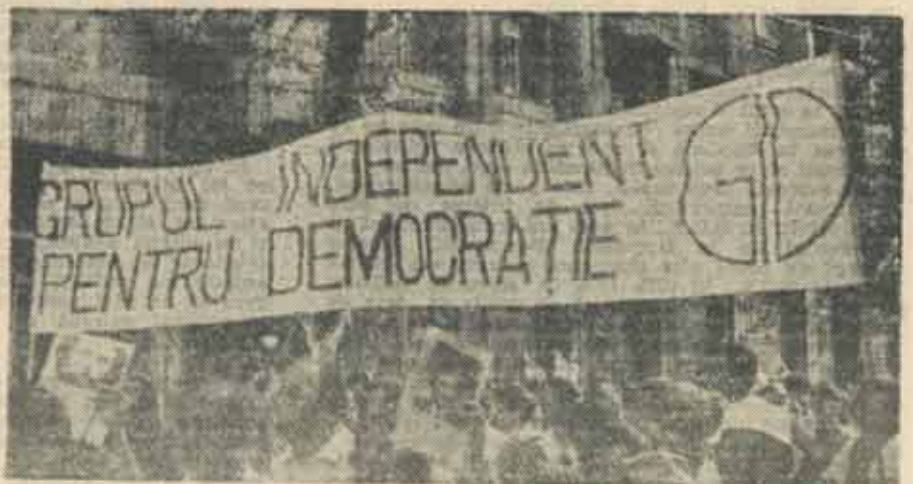 GRUPUL INDEPENDENT
PENTRU DEMOCRAȚIE
GID